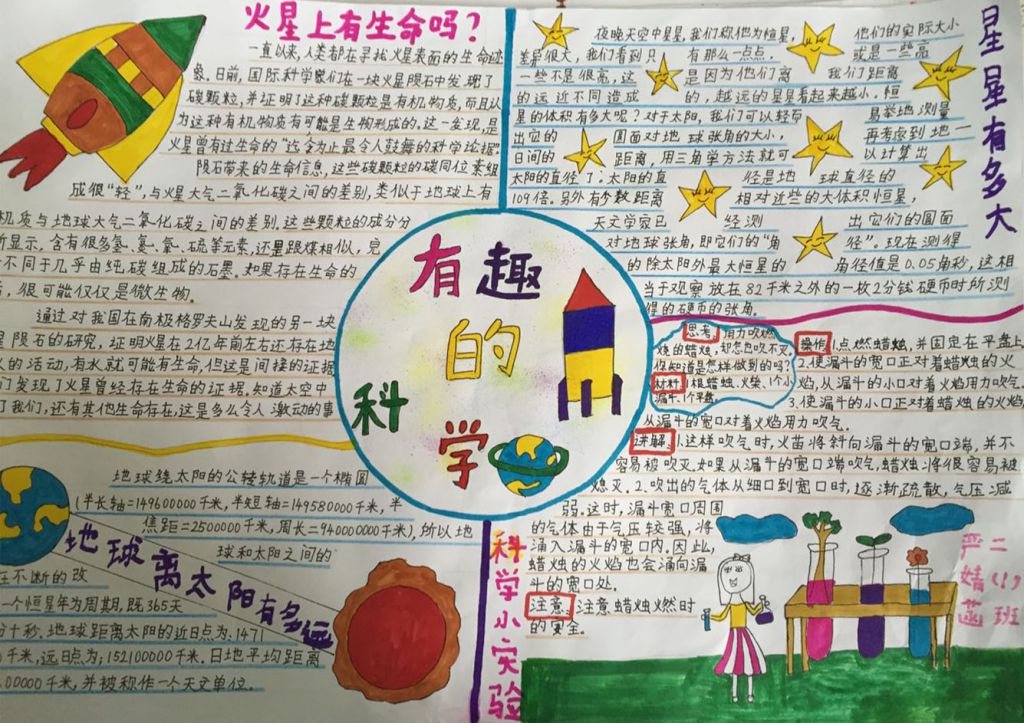 火星上有生命吗？
一直以来,人类都在寻找火星表面的生命迹
象。日前,国际科学家们在一块火星陨石中发现了
碳颗粒,并证明了这种碳颗粒是有机物质,而且认
为这种有机物质有可能是生物形成的。这一发现,是
火星曾有过生命的“迄今为止最令人鼓舞的科学论据”
陨石带来的生命信息,这些碳颗粒的碳同位素组
成很“轻”,与火星大气二氧化碳之间的差别,类似于地球上有
机质与地球大气二氧化碳之间的差别。这些颗粒的成分分
显示,含有很多氢、氮、氧、硫等元素,还量跟煤相似,完
不同于几乎由纯碳组成的石墨。如果存在生命的
,很可能仅仅是微生物。
通过对我国在南极格罗夫山发现的另一块
陨石的研究,证明火星在2亿年前左右还存在地
的活动,有水就可能有生命,但这是间接的证据
们发现了火星曾经存在生命的证据。知道太空中
了我们,还有其他生命存在,这是多么令人激动的事
有趣的科学
星星有多大
夜晚天空中星星,我们称他为恒星,他们的实际大小
差异很大,我们看到只有那么一点点,或是一些亮
一些不是很亮,这是因为他们离我们距离
的远近不同造成的,越远的星星看起来越小。恒
星的体积有多大呢?对于太阳,我们可以轻而易举地测量
出它的圆面对地球张角的大小,再考虑到地一
日间的距离,用三角学方法就可以计算出
太阳的直径了.太阳的直径是地球直径的
109倍。另外有参数距离相对近些的大体积恒星,
天文学家已经测出它们的圆面
对地球张角,即它们的“角径”。现在测得
的除太阳外最大恒星的角径值是0.05角秒,这相
当于观察放在82千米之外的一枚2分钱硬币时所测
得的硬币的张角。
思考:用力吹燃
烧的蜡烛,却怎也吹不灭。
你知道是怎样做到的吗?
材料:1根蜡烛、火柴、1个小
漏斗、1个平盘。
操作:1.点燃蜡烛,并固定在平盘上。
2.使漏斗的宽口正对着蜡烛的火
焰,从漏斗的小口对着火焰用力吹气。
3.使漏斗的小口正对着蜡烛的火焰
从漏斗的宽口对着火焰用力吹气.
讲解:1.这样吹气时,火苗将斜向漏斗的宽口端,并不
容易被吹灭.如果从漏斗的宽口端吹气,蜡烛将很容易被
熄灭。2.吹出的气体从细口到宽口时,逐渐疏散,气压减
弱。这时,漏斗宽口周围
的气体由于气压较强,将
涌入漏斗的宽口内。因此,
蜡烛的火焰也会涌向漏
斗的宽口处。
注意:注意蜡烛燃时
的安全。
科学小实验
地球离太阳有多远
地球绕太阳的公转轨道是一个椭圆
(半长轴=149600000千米,半短轴=149580000千米,半
焦距=2500000千米,周长=940000000千米),所以地
球和太阳之间的
在不断的改
一个恒星年为周期,既365天
十秒.地球距离太阳的近日点为:1471
千米,远日点为:152100000千米.日地平均距离
00000千米,并被称作一个天文单位.
二(1)班
严婧菡